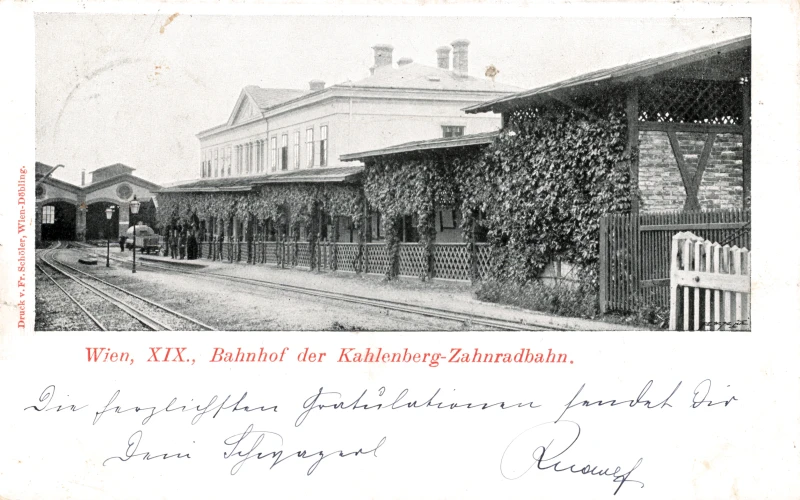 Druck v. Fr. Schöler, Wien-Döbling.
Wien, XIX., Bahnhof der Kahlenberg-Zahnradbahn.
Die herzlichsten Gratulationen sendet Dir
Dein Schwagerl